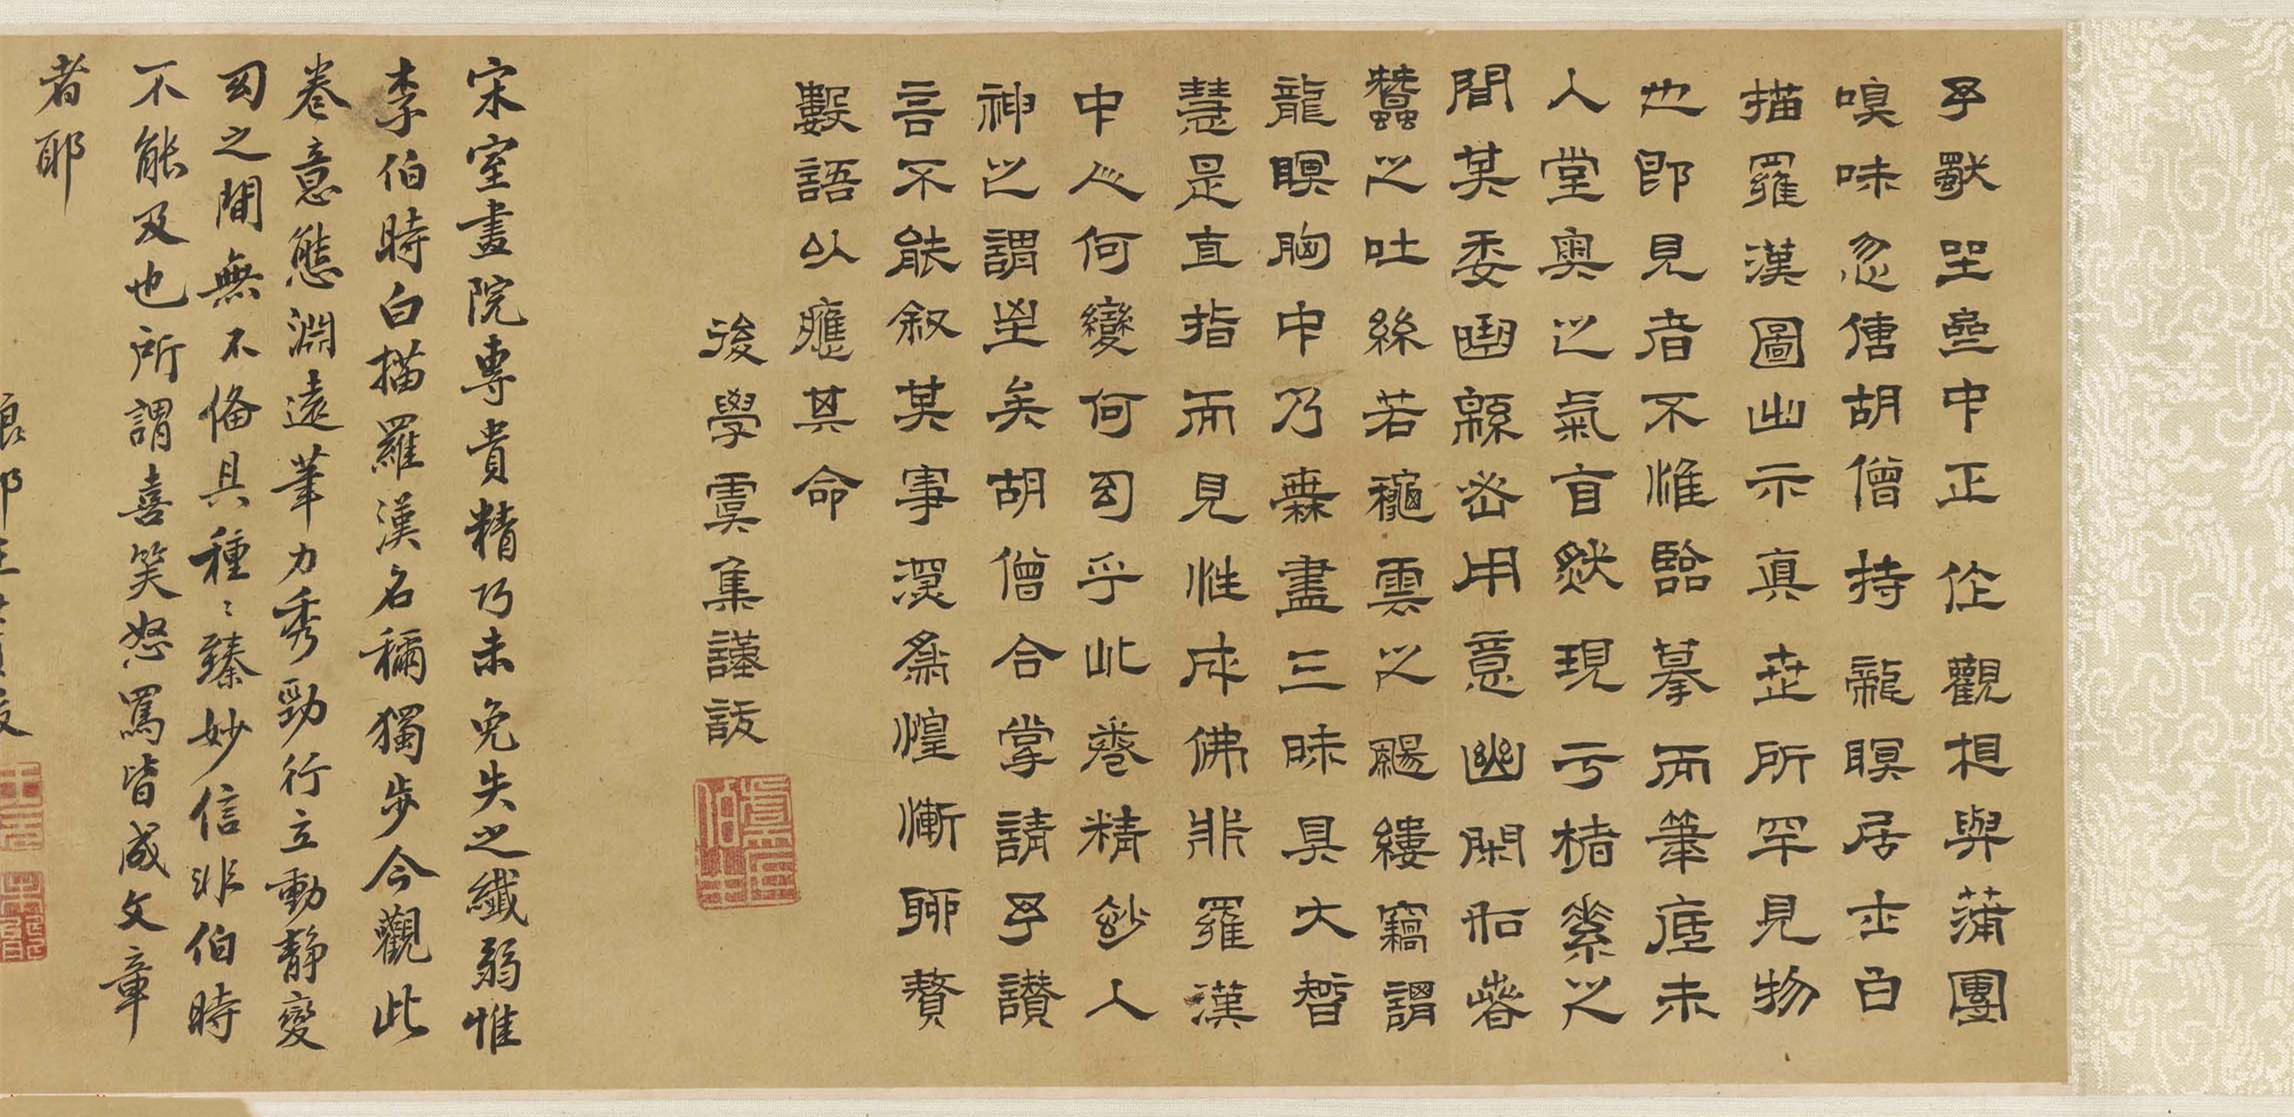 予獸坐壺中正作觀想與蒲團
嗅味忽傳胡僧持龍眠居士白
描羅漢圖出示真世所罕見物
也即見者不惟臨摹而筆底未
人堂奧之氣盲然現于楮素之
間其委曲緜密用意幽閑如春
蠶之吐絲若龝雲之颺縷竊謂
龍眠胸中乃無盡三昧具大智
慧是直指而見性成佛非羅漢
中人何變何幻乎此卷精妙人
神之謂坐矣胡僧合掌請予讚
言不能叙其事深爲惶慚聊贅
數語以應其命
後學虞集謹跋
宋室畫院專貴精巧未免失之纖弱惟
李伯時白描羅漢名稱獨步今觀此
卷意態淵遠筆力秀勁行立動靜變
幻之間無不備具種〻臻妙信非伯時
不能及也所謂喜笑怒罵皆成文章
者耶